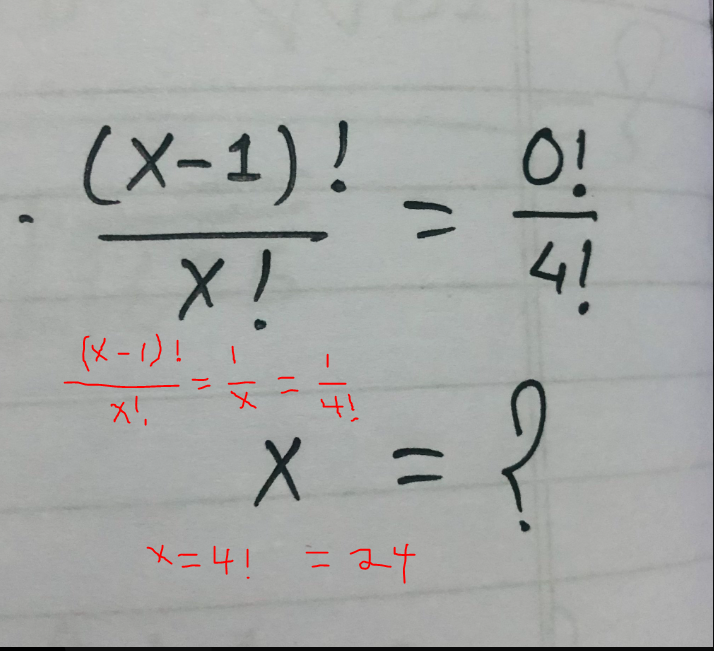 (x-1)! / x! = 0! / 4!
(x-1)! / x! = 1 / x = 1 / 4!
x = ?
x = 4! = 24